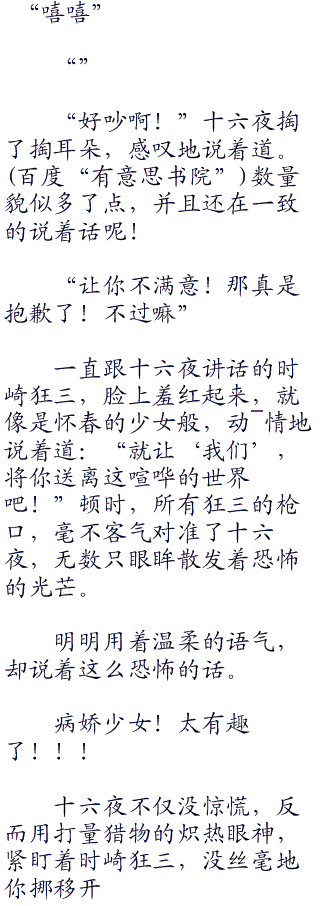 “嘻嘻”
“”
“好吵啊！”十六夜掏
了掏耳朵，感叹地说着道。
(百度“有意思书院”)数量
貌似多了点，并且还在一致
的说着话呢！
“让你不满意！那真是
抱歉了！不过嘛”
一直跟十六夜讲话的时
崎狂三，脸上羞红起来，就
像是怀春的少女般，动¯情地
说着道：“就让‘我们’，
将你送离这喧哗的世界
吧！”顿时，所有狂三的枪
口，毫不客气对准了十六
夜，无数只眼眸散发着恐怖
的光芒。
明明用着温柔的语气，
却说着这么恐怖的话。
病娇少女！太有趣
了！！！
十六夜不仅没惊慌，反
而用打量猎物的炽热眼神，
紧盯着时崎狂三，没丝毫地
你挪移开